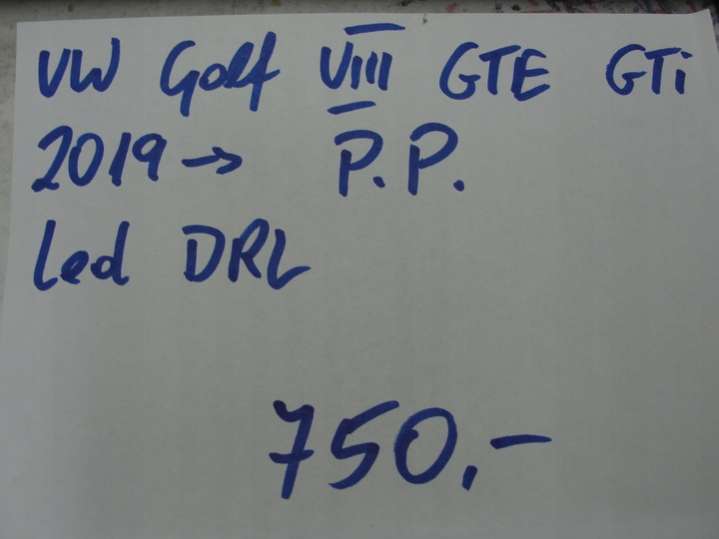 VW Golf VIII GTE GTi
2019 → P.P.
Led DRL
750,-